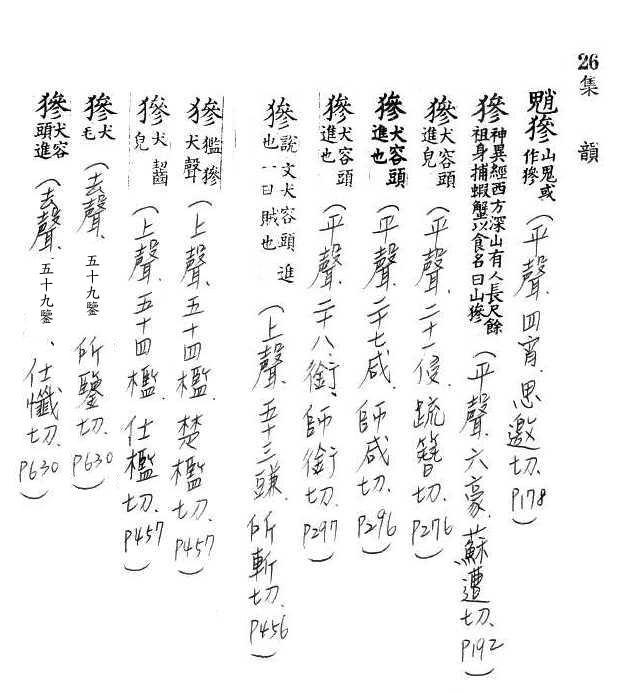 26集韻
魈㺑山鬼或作㺑（平聲、四宵、思邀切、P178）
㺑神異經西方深山有人長尺餘祖身捕蝦蟹以食名曰山㺑（平聲、六豪、蘇遭切、P192）
㺑犬容頭進皃（平聲、二十一侵、疏簪切、P276）
㺑犬容頭進也（平聲、二十七咸、師咸切、P296）
㺑犬容頭進也（平聲、二十八銜、師銜切、P297）
㺑說文犬容頭進也一曰賊也（上聲、五十三豏、所斬切、P456）
㺑㺖㺑犬聲（上聲、五十四檻、楚檻切、P457）
㺑犬齧皃（上聲、五十四檻、仕檻切、P457）
㺑犬毛（去聲、五十九鑒、所鑒切、P630）
㺑犬容頭進（去聲、五十九鑒、仕懺切、P630）